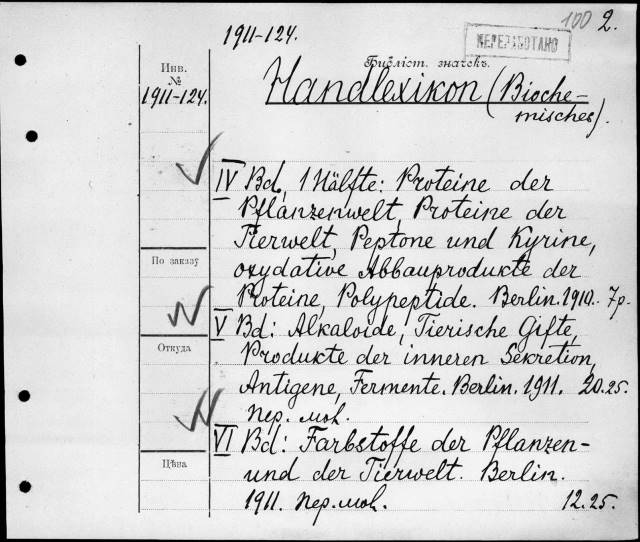 100 2.
1911-124.
ПЕРЕРАБОТАНО
Инв.
№
1911-124.
Библіот. значекъ.
Handlexikon (Bioche-
misches).
IV Bd, 1 Hälfte: Proteine der
Pflanzenwelt, Proteine der
Tierwelt, Peptone und Kyrine,
oxydative Abbauprodukte der
Proteine, Polypeptide. Berlin. 1910. 7р.
По заказу
V Bd: Alkaloide, Tierische Gifte,
Откуда
Produkte der inneren Sekretion,
Antigene, Fermente. Berlin. 1911. 20.25.
пер.
VI Bd: Farbstoffe der Pflanzen-
Цѣна
und der Tierwelt. Berlin.
1911. пер. 12.25.